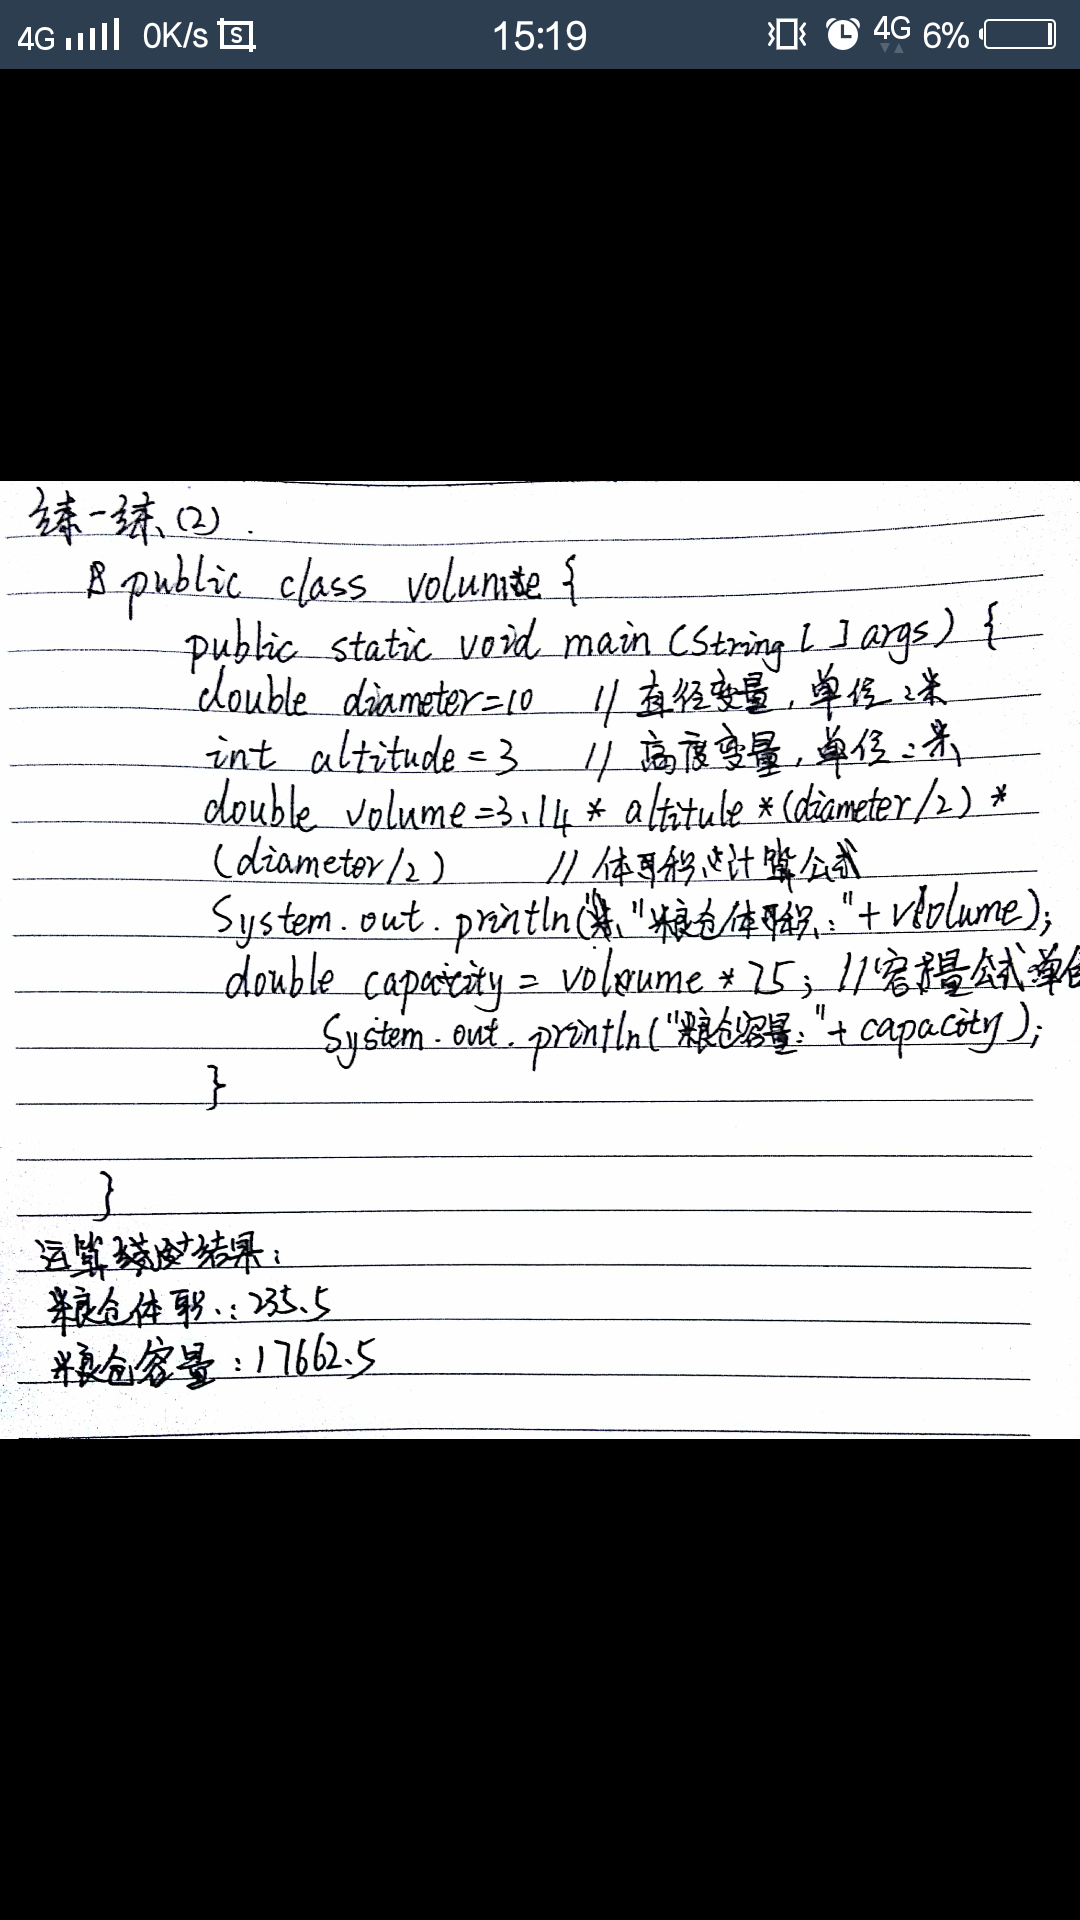 4G 0K/s S 15:19 4G 6%
练一练、(2).
public class volume {
public static void main (String [ ] args) {
double diameter=10 // 直径变量,单位:米
int altitude = 3 // 高度变量,单位:米
double volume=3.14 * altitule *(diameter/2) *
(diameter/2) // 体积计算公式
System.out.println("粮仓体积:"+ volume);
double capacity = volume * 75; //容量公式单位
System.out.println("粮仓容量:"+ capacity);
}
}
运算结果:
粮仓体积:235.5
粮仓容量:17662.5